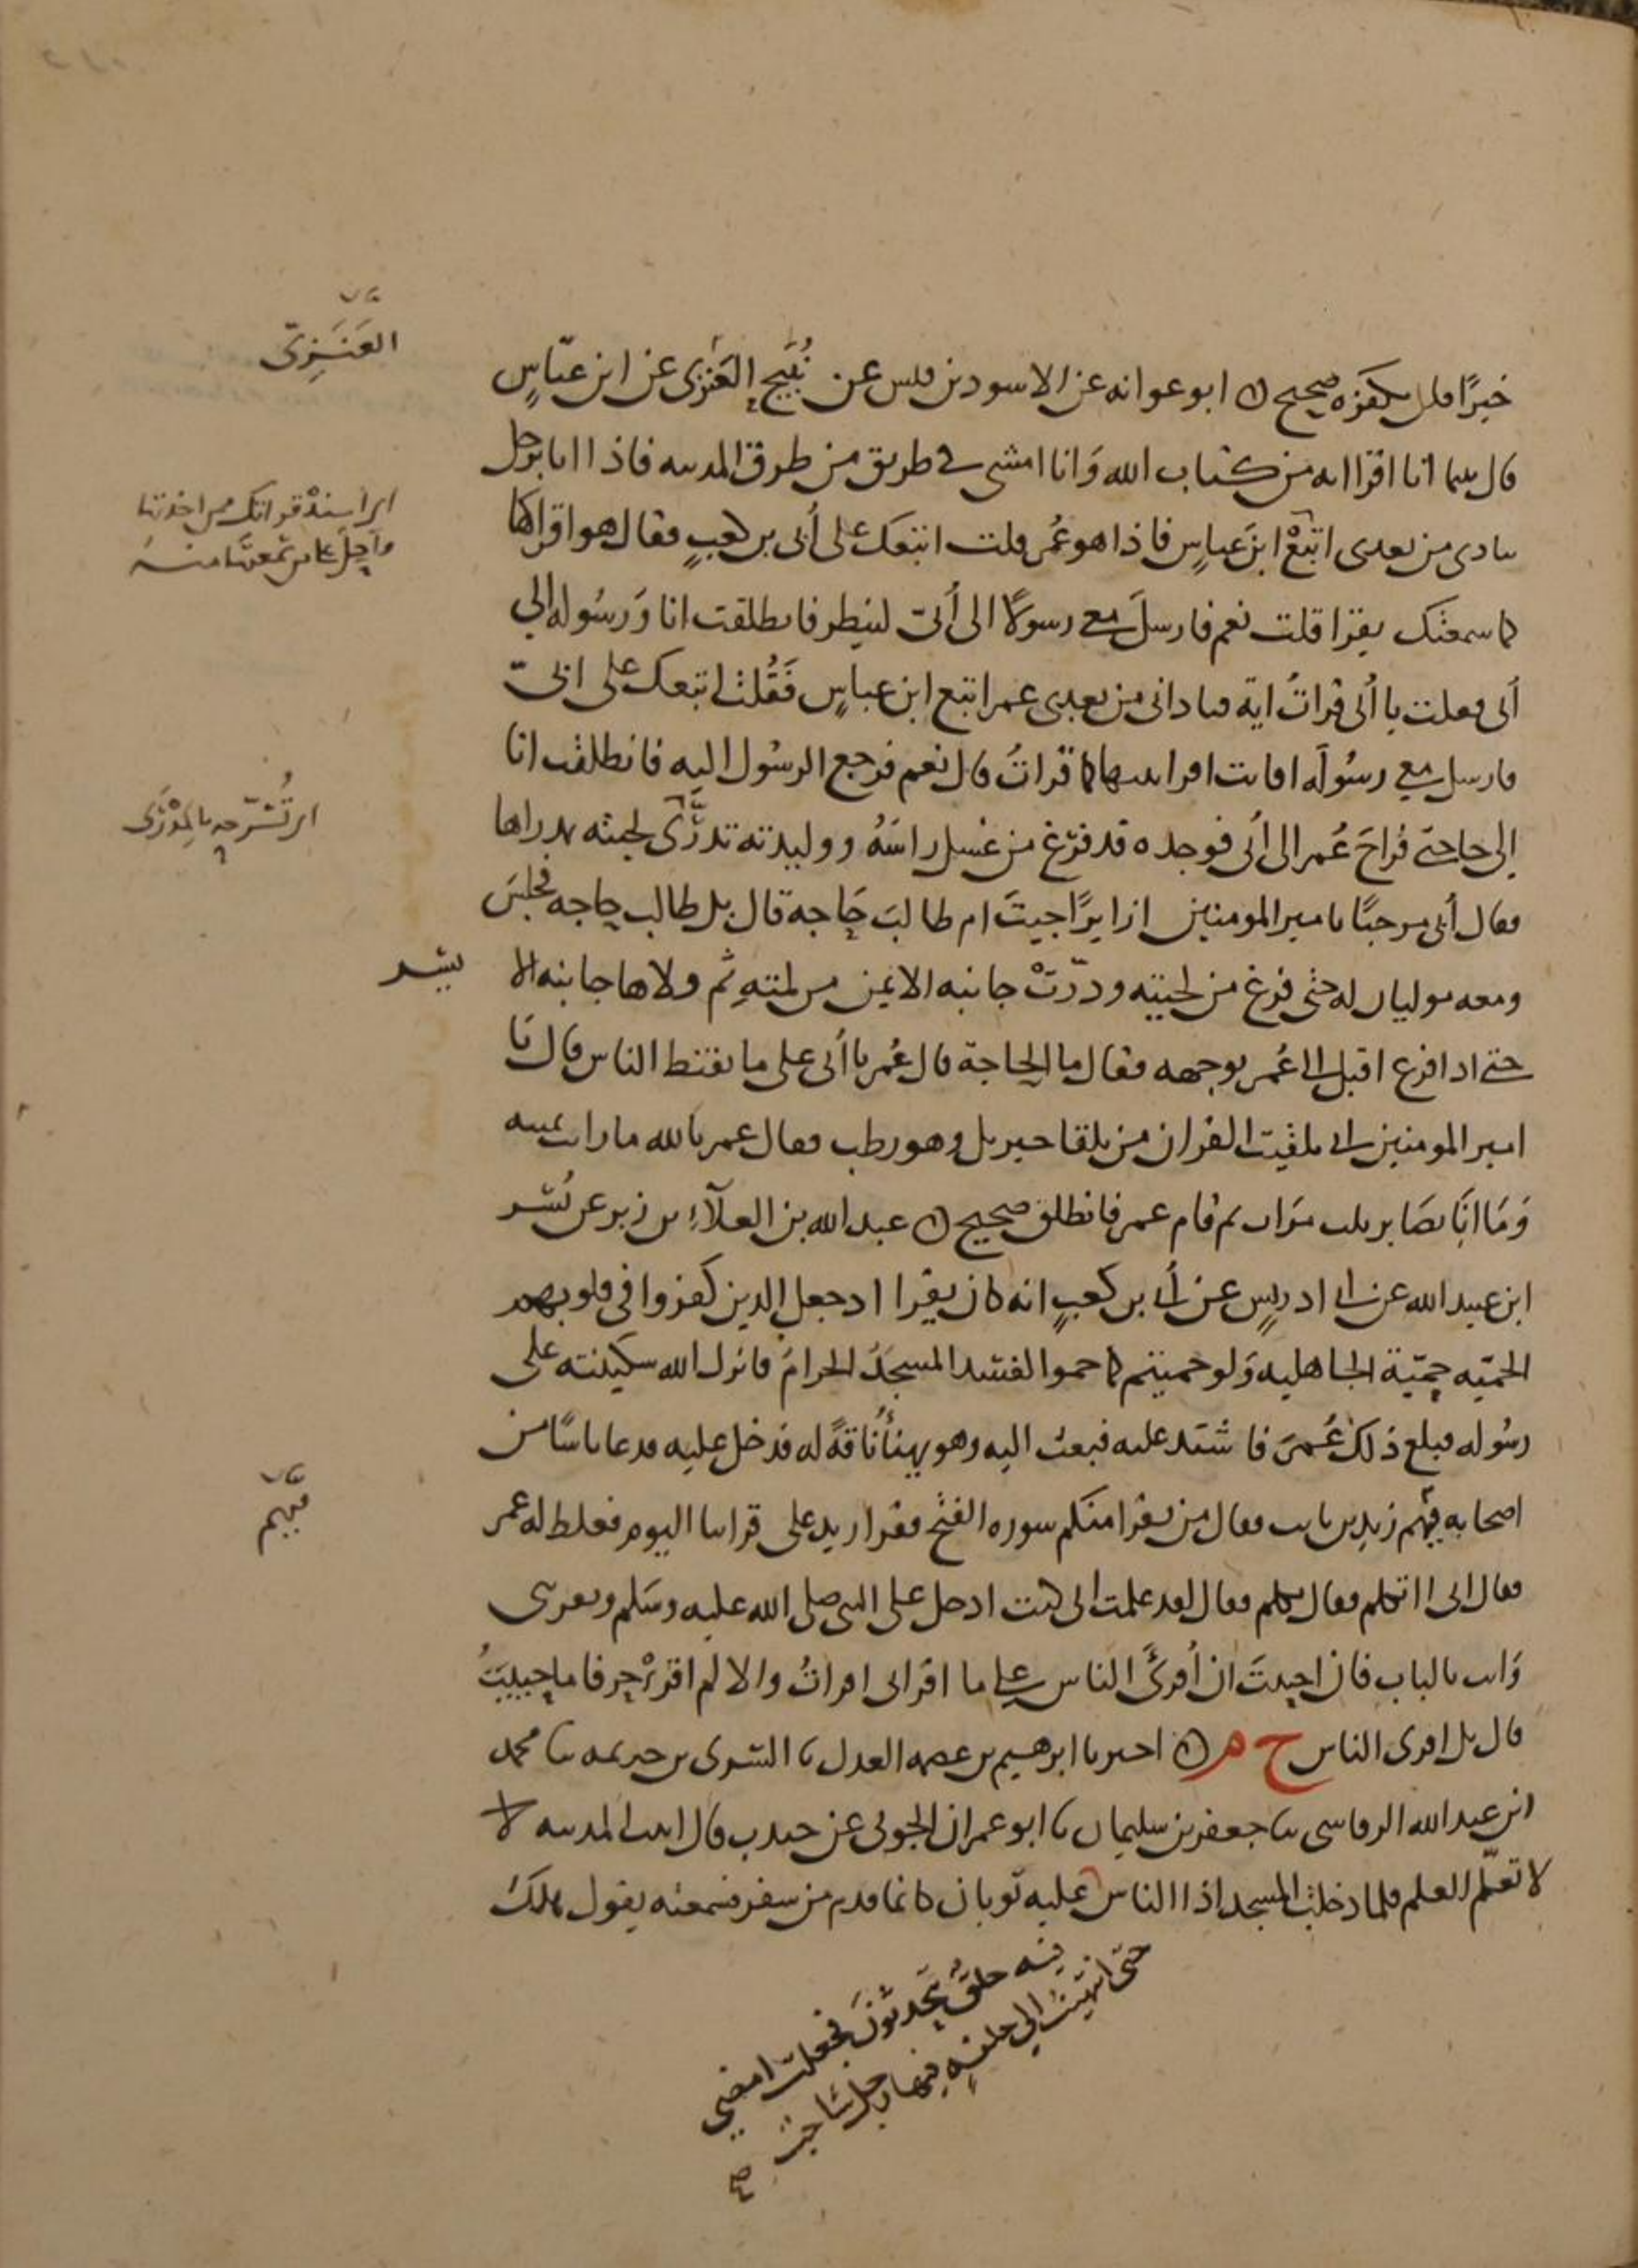 خيرًا فلن يكفره صحيح ابو عوانه عن الاسود بن قيس عن نُبَيح العَنَزى عن ابن عبّاسٍ
قال بينما انا اقرا ايه من كتاب الله وَانا امشى في طريق من طرق المدينه فاذا انا برجل
ينادى من بعدى اتبَعْ ابنَ عباسٍ فاذا هو عُمر فقلت اتبعك على أُبى بن كعبٍ فقال هو اقراكها
كما سمعتك يقرا قلت نعم فارسلَ معى رسولًا الى أُبىّ لينظر فانطلقت انا وَرسُوله الى
أبى فقلت يا أُبى قراتُ اية فنادانى من بعدى عمر اتبع ابن عباسٍ فَقُلت اتبعك على ابىّ
فارسل معى رسُولَه افانت اقراتنيها كما قراتُ قال نعم فرجع الرسُول اليه فانطلقت انا
الى حاجتى فراحَ عُمر الى أُبى فوجده قد فرّغ من غسل راسَهُ ووليدته تدرّى لحيته بمدراها
فقال أُبى مرحبًا يا امير المومنين ازايرًا جيتَ ام طالبَ حَاجه قال بل طالب حاجه فجلسَ
ومعه موليان له حتى فرغ من لحيته ودرّتْ جانبه الايمن من لمتهِ ثم ولاها جانبه الا يسر
حتى اذا فرغ اقبل الى عُمر بوجهه فقال ما الحاجة قال عُمر يا أبى على ما تقنط الناس قال يَا
امير المومنين انى تلقيت القران من تلقا جبريل وهو رطب فقال عمر بالله ما انت بمنته
وَمَا انَا بصَابر ثلث مَرات ثم قام عمر فانطلق صحيح عبد الله بن العلآءِ بن زبر عن بُسْر
ابن عبيد الله عن ابى ادريسٍ عن أُبى بن كعبٍ انه كان يقرا اذ جعل الذين كفروا فى قلوبهم
الحميّه حِمّيّة الجاهليه وَلو حميتم كما حموا لفسد المسجدُ الحرامُ فانزل الله سكينته على
رسُوله فبلغ ذلك عُمرَ فاشتد عليه فبعث اليه وهو يهنأُ ناقةً له فدخل عليه فدعا ناسًا من
اصحابه فيهم زيد بن ثابت فقال من يقرا منكم سوره الفتح فقرا زيد على قراتنا اليوم فغلظ له عمر
فقال ابى اأتكلم فقال تكلم فقال لقد علمت انى كنت ادخل على النبى صلى الله عليه وسَلم ويقربنى
وَانت بالباب فان احببتَ ان أُقرئَ الناس على ما اقرانى اقراتُ والا لم اقرئْ حرفا ما حييتُ
قال بل اقرى الناس ح م اخبرنا ابرهيم بن عصمه العدل نا السَرى بن خزيمه ثنا محمد
ابن عبد الله الرقاشى ثنا جعفر بن سليمان ثنا ابو عمران الجونى عن جندب قال اتيت المدينه لا
لا تعلّم العلم فلما دخلت المسجد اذا الناس عليه ثوبان كانما قدم من سفر فسمعته يقول هلكَ
فيه حلقٌ يتحدثونَ فجعلت امضي
حتى انتهيتُ الى حلقةٍ فيها رجل شاحبٌ صح
العَنَزِىّ
اى اسند قراتك ممن اخذتها
واحِلْ على من سمعتها منه
اى تُسَرّحه بالمِدْرَى
فيهم